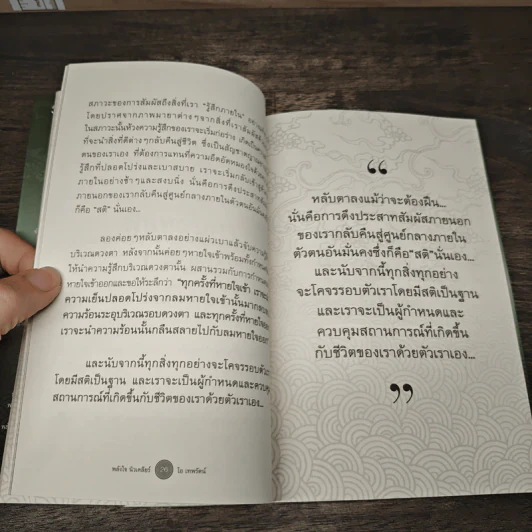 สภาวะของการสัมผัสถึงสิ่งที่เรา "รู้สึกภายใน"
โดยปราศจากภาพมายาต่างๆจากสิ่งที่เราสัมผัส
ในสภาวะนั้นห้วงความรู้สึกของเราจะเริ่มก่อร่าง
ที่จะนำสิ่งที่ดีต่างๆกลับคืนสู่ชีวิต ซึ่งเป็นสัญชาตญาณ
ตนของเราเอง ที่ต้องการแทนที่ความอึดอัดหม่อง
รู้สึกที่ปลอดโปร่งและเบาสบาย เราจะเริ่มกลับเข้าสู่
ภายในอย่างช้าๆและสงบนิ่ง นั่นคือการดึงประสาท
ภายนอกของเรากลับคืนสู่ศูนย์กลางภายในตัวตนอันมั่น
ก็คือ "สติ" นั่นเอง...
ลองค่อยๆหลับตาลงอย่างแผ่วเบาแล้วจับความรู้
บริเวณดวงตา หลังจากนั้นค่อยๆหายใจเข้าพร้อมทั้งกำหนด
ให้นำความรู้สึกบริเวณดวงตานั้น ผสานรวมกับการกำหนด
หายใจเข้าออกและขอให้ระลึกว่า "ทุกครั้งที่หายใจเข้า เราจะ
ความเย็นปลอดโปร่งจากลมหายใจเข้านั้นมาทดแทน
ความร้อนระอุบริเวณรอบดวงตา และทุกครั้งที่หายใจออก
เราจะนำความร้อนนั้นกลืนสลายไปกับลมหายใจออก
และนับจากนี้ทุกสิ่งทุกอย่างจะโคจรรอบตัวเรา
โดยมีสติเป็นฐาน และเราจะเป็นผู้กำหนดและควบคุม
สถานการณ์ที่เกิดขึ้นกับชีวิตของเราด้วยตัวเราเอง...
พลังใจ นิวเคลียร์ 26 โอ เทพรัตน์
“
หลับตาลงแม้ว่าจะต้องฝืน...
นั่นคือการดึงประสาทสัมผัสภายนอก
ของเรากลับคืนสู่ศูนย์กลางภายใน
ตัวตนอันมั่นคงซึ่งก็คือ"สติ"นั่นเอง...
และนับจากนี้ทุกสิ่งทุกอย่าง
จะโคจรรอบตัวเราโดยมีสติเป็นฐาน
และเราจะเป็นผู้กำหนดและ
ควบคุมสถานการณ์ที่เกิดขึ้น
กับชีวิตของเราด้วยตัวเราเอง...
”